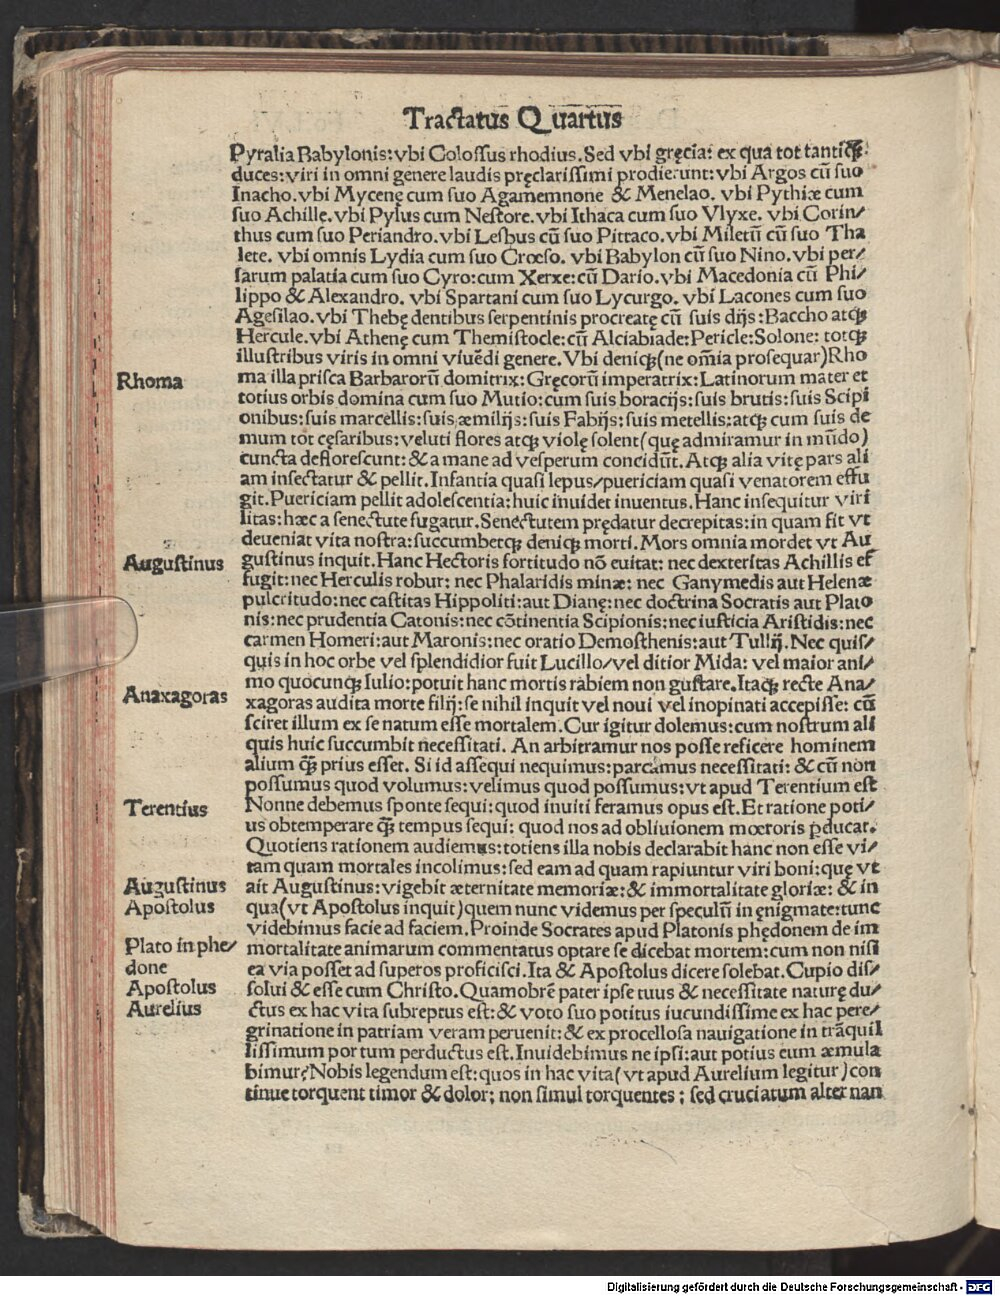 Tractatus Quartus
Pyralia Babylonis:vbi Colossus rhodius.Sed vbi gręcia: ex qua tot tantiq̃:
duces:viri in omni genere laudis pręclarissimi prodierunt:vbi Argos cū suo
Inacho.vbi Mycenę cum suo Agamemnone & Menelao. vbi Pythiæ cum
suo Achille.vbi Pylus cum Nestore.vbi Ithaca cum suo Vlyxe. vbi Corin/
thus cum suo Periandro.vbi Lesbus cū suo Pittaco.vbi Miletū cū suo Tha
lete. vbi omnis Lydia cum suo Crœso. vbi Babylon cū suo Nino.vbi per/
sarum palatia cum suo Cyro:cum Xerxe:cū Dario.vbi Macedonia cū Phi/
lippo & Alexandro. vbi Spartani cum suo Lycurgo. vbi Lacones cum suo
Agesilao.vbi Thebę dentibus serpentinis procreatę cū suis dijs:Baccho atqȝ
Hercule.vbi Athenę cum Themistocle:cū Alciabiade:Pericle:Solone: totqȝ
illustribus viris in omni viuēdi genere.Vbi deniqȝ(ne oīa prosequar)Rho
Rhoma
ma illa prisca Barbarorū domitrix:Gręcorū imperatrix:Latinorum mater et
totius orbis domina cum suo Mutio:cum suis boracijs:suis brutis:suis Scipi
onibus:suis marcellis:suis æmilijs:suis Fabijs:suis metellis:atqȝ cum suis de
mum tot cęsaribus:veluti flores atqȝ violę solent(quę admiramur in mūdo)
cuncta deflorescunt:& a mane ad vesperum concidūt.Atqȝ alia vitę pars ali
am insectatur & pellit.Infantia quasi lepus/puericiam quasi venatorem effu
git.Puericiam pellit adolescentia:huic inuidet iuuentus.Hanc insequitur viri
litas:hæc a senectute fugatur.Senectutem prędatur decrepitas:in quam fit vt
deueniat vita nostra:succumbetqȝ deniqȝ morti.Mors omnia mordet vt Au
Augustinus
gustinus inquit.Hanc Hectoris fortitudo nō euitat: nec dexteritas Achillis ef
fugit:nec Herculis robur: nec Phalaridis minæ: nec Ganymedis aut Helenæ
pulcritudo:nec castitas Hippoliti:aut Dianę:nec doctrina Socratis aut Plato
nis:nec prudentia Catonis:nec cōtinentia Scipionis:nec iusticia Aristidis:nec
carmen Homeri:aut Maronis:nec oratio Demosthenis:aut Tullij.Nec quis/
quis in hoc orbe vel splendidior fuit Lucillo/vel ditior Mida: vel maior ani/
mo quocunqȝ Iulio:potuit hanc mortis rabiem non gustare.Itaqȝ recte Ana/
Anaxagoras
xagoras audita morte filij:se nihil inquit vel noui vel inopinati accepisse: cū
sciret illum ex se natum esse mortalem.Cur igitur dolemus:cum nostrum ali
quis huic succumbit necessitati. An arbitramur nos posse reficere hominem
alium q̃ȝ prius esset. Si id assequi nequimus:parcamus necessitati: & cū non
possumus quod volumus:velimus quod possumus:vt apud Terentium est
Terentius
Nonne debemus sponte sequi:quod inuiti feramus opus est.Et ratione poti/
us obtemperare q̃ȝ tempus sequi: quod nos ad obliuionem mœroris ꝑducat.
Quotiens rationem audiemus:totiens illa nobis declarabit hanc non esse vi/
tam quam mortales incolimus:sed eam ad quam rapiuntur viri boni:quę vt
Augustinus
ait Augustinus:vigebit æternitate memoriæ:& immortalitate gloriæ: & in
Apostolus
qua(vt Apostolus inquit)quem nunc videmus per speculū in ęnigmate:tunc
videbimus facie ad faciem.Proinde Socrates apud Platonis phędonem de im
Plato in phe/
done
mortalitate animarum commentatus optare se dicebat mortem:cum non nisi
ea via posset ad superos proficisci.Ita & Apostolus dicere solebat.Cupio dis/
Apostolus
solui & esse cum Christo.Quamobrē pater ipse tuus & necessitate naturę du/
Aurelius
ctus ex hac vita subreptus est:& voto suo potitus iucundissime ex hac pere/
grinatione in patriam veram peruenit:& ex procellosa nauigatione in trāquil
lissimum portum perductus est.Inuidebimus ne ipsi:aut potius eum æmula
bimur?Nobis legendum est:quos in hac vita(vt apud Aurelium legitur)con
tinue torquent timor & dolor; non simul torquentes : sed cruciatum alternan
Digitalisierung gefördert durch die Deutsche Forschungsgemeinschaft - DFG